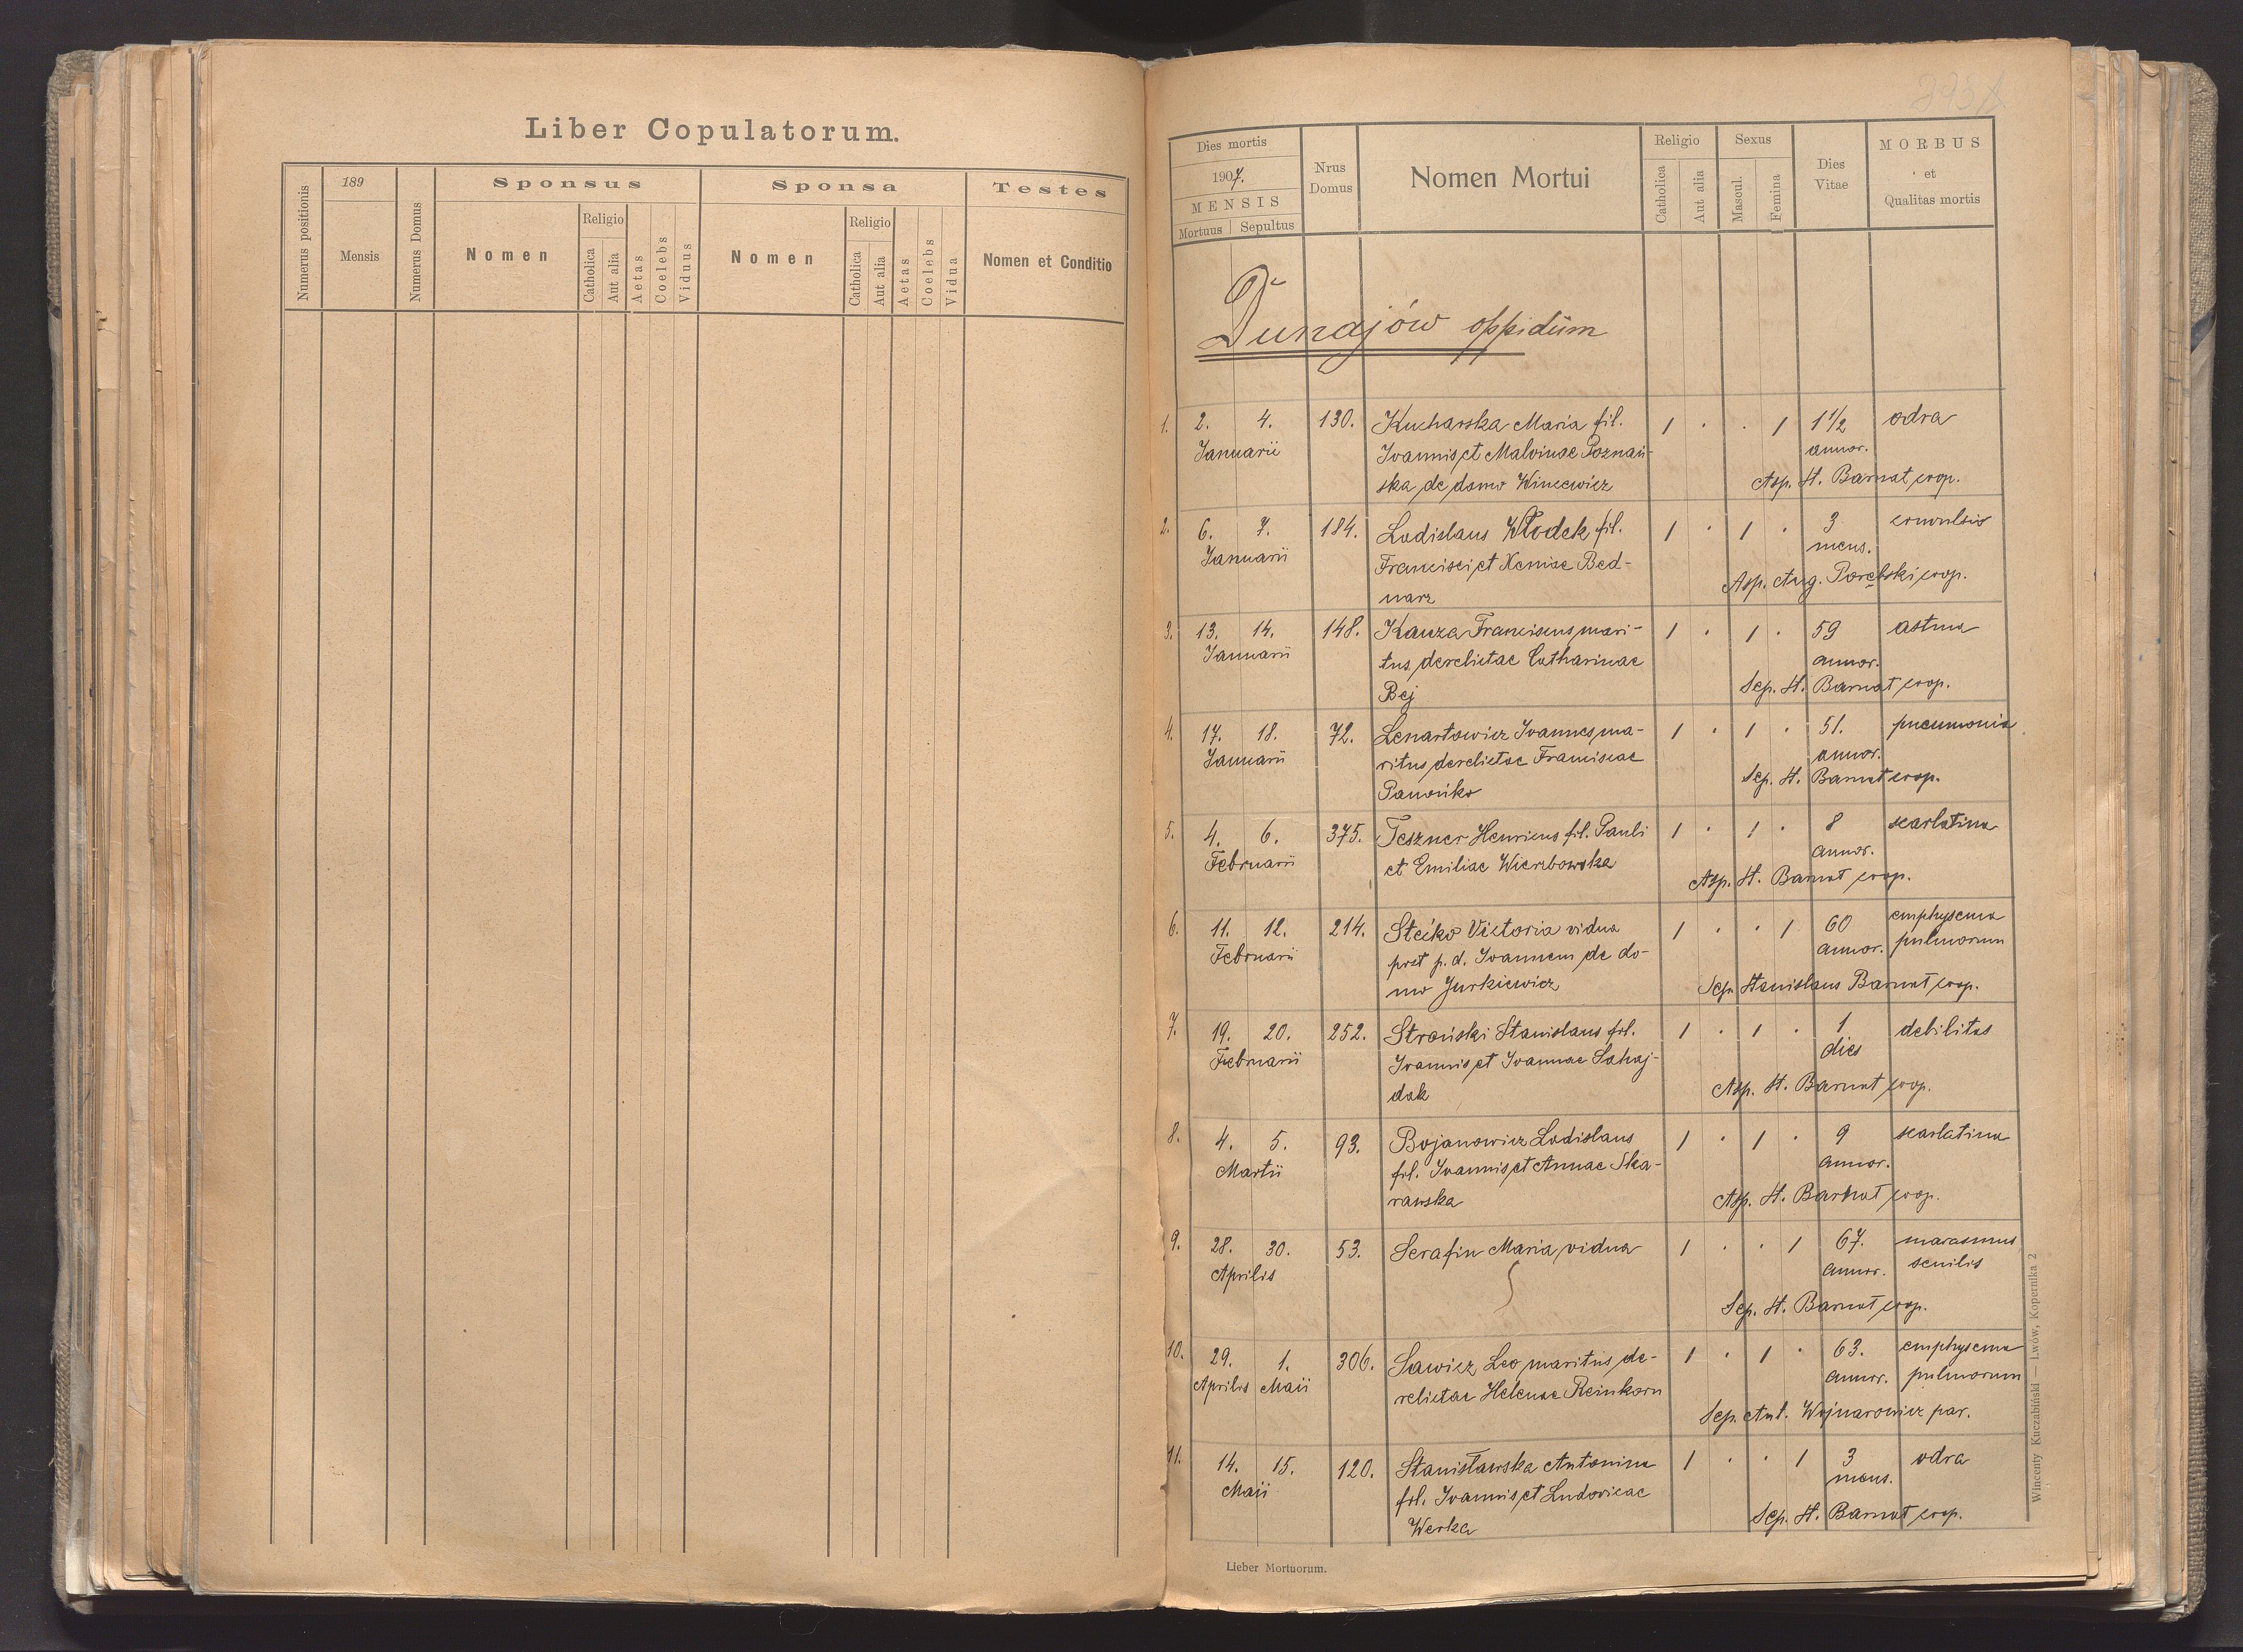 Liber Copulatorum.
Numerus positionis
189
Mensis
Numerus Domus
Sponsus
Nomen
Religio
Catholica
Aut alia
Aetas
Coelebs
Viduus
Sponsa
Nomen
Religio
Catholica
Aut alia
Aetas
Coelebs
Vidua
Testes
Nomen et Conditio
Dies mortis
1907.
MENSIS
Mortuus Sepultus
Nrus
Domus
Nomen Mortui
Religio
Catholica
Aut alia
Sexus
Mascul.
Femina
Dies
Vitae
MORBUS
et
Qualitas mortis
Dunajów oppidum
1. 2. 4. 130. Kucharska Maria fil. 1 · · 1 1 1/2 odra
Januarii Joannis et Malvinae Poznań- annor.
ska de domo Wincewicz Asp. St. Barnat coop.
2. 6. 7. 184. Ladislaus Włodek fil. 1 · 1 · 3 convulsio
Januarii Francisci et Xeniae Bed- mens.
narz Asp. Aug. Porębski coop.
3. 13. 14. 148. Kauza Franciscus mari- 1 · 1 · 59 astma
Januarii tus derelictae Catharinae annor.
Bej Sep. St. Barnat coop.
4. 17. 18. 72. Lenartowicz Joannes ma- 1 · 1 · 51. pneumonia
Januarii ritus derelictae Franciscae annor.
Panońko Sep. St. Barnat coop.
5. 4. 6. 375. Teszner Henricus fil. Pauli 1 · 1 · 8 scarlatina
Februarii et Emiliae Wierzbowska annor.
Asp. St. Barnat coop.
6. 11. 12. 214. Stećko Victoria vidua 1 · · 1 60 emphysema
Februarii post p. d. Joannem de do- annor. pulmorum
mo Jurkiewicz Sep. Stanislaus Barnat coop.
7. 19. 20. 252. Stroński Stanislaus fil. 1 · 1 · 1 debilitas
Februarii Joannis et Joannae Sahaj- dies
dak Asp. St. Barnat coop.
8. 4. 5. 93. Bojanowicz Ladislaus 1 · 1 · 9 scarlatina
Martii fil. Joannis et Annae Ska- annor.
rawska Asp. St. Barnat coop.
9. 28. 30. 53. Serafin Maria vidua 1 · · 1 67. marasmus
Aprilis annor. senilis
Sep. St. Barnat coop.
10. 29. 1. 306. Sawicz Leo maritus de- 1 · 1 · 63. emphysema
Aprilis Maii relictae Helenae Reinkorn annor. pulmorum
Sep. Ant. Wojnarowicz par.
11. 14. 15. 120. Stanisławska Antonina 1 · · 1 3 odra
Maii fil. Joannis et Ludovicae mens.
Werka Sep. St. Barnat coop.
Lieber Mortuorum.
Wincenty Kuczabiński — Lwów, Kopernika 2